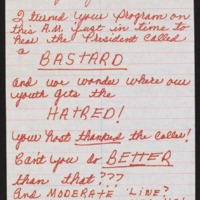 I turned your Program on
this A.M. just in time to
hear the President called
a
BASTARD
and we wonder where our
youth gets the
HATRED!
your host thanked the caller!
Can't you do BETTER
than that???
And MODERATE "LINE"?